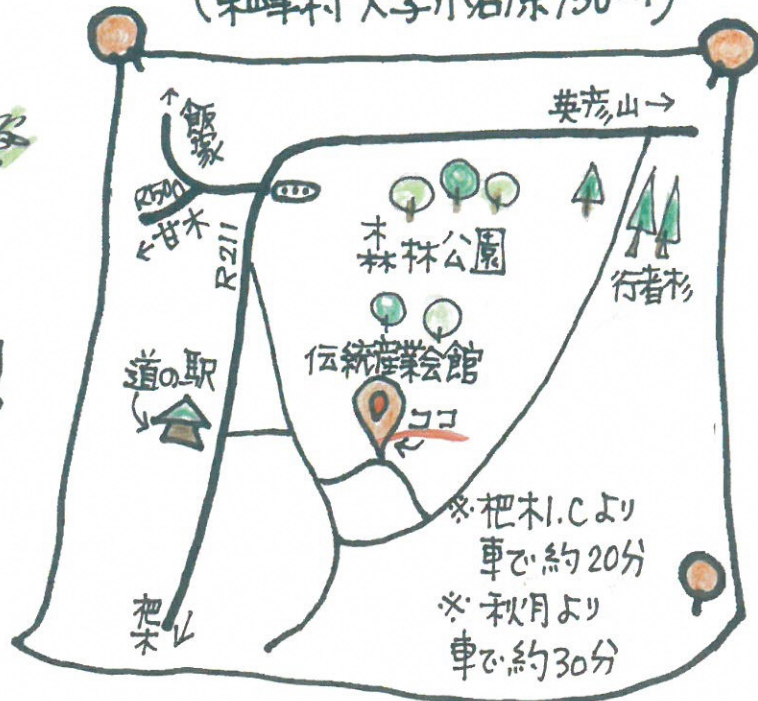 (東峰村 大字小石原730-9)
英彦山→
↑飯塚
R500
←甘木
R211
森林公園
行者杉
伝統産業会館
道の駅
ココ
※杷木I.Cより
車で約20分
※秋月より
車で約30分
杷木